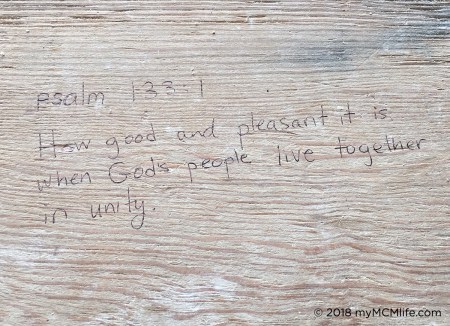 psalm 133:1
How good and pleasant it is
when God's people live together
in unity.
© 2018 myMCMlife.com